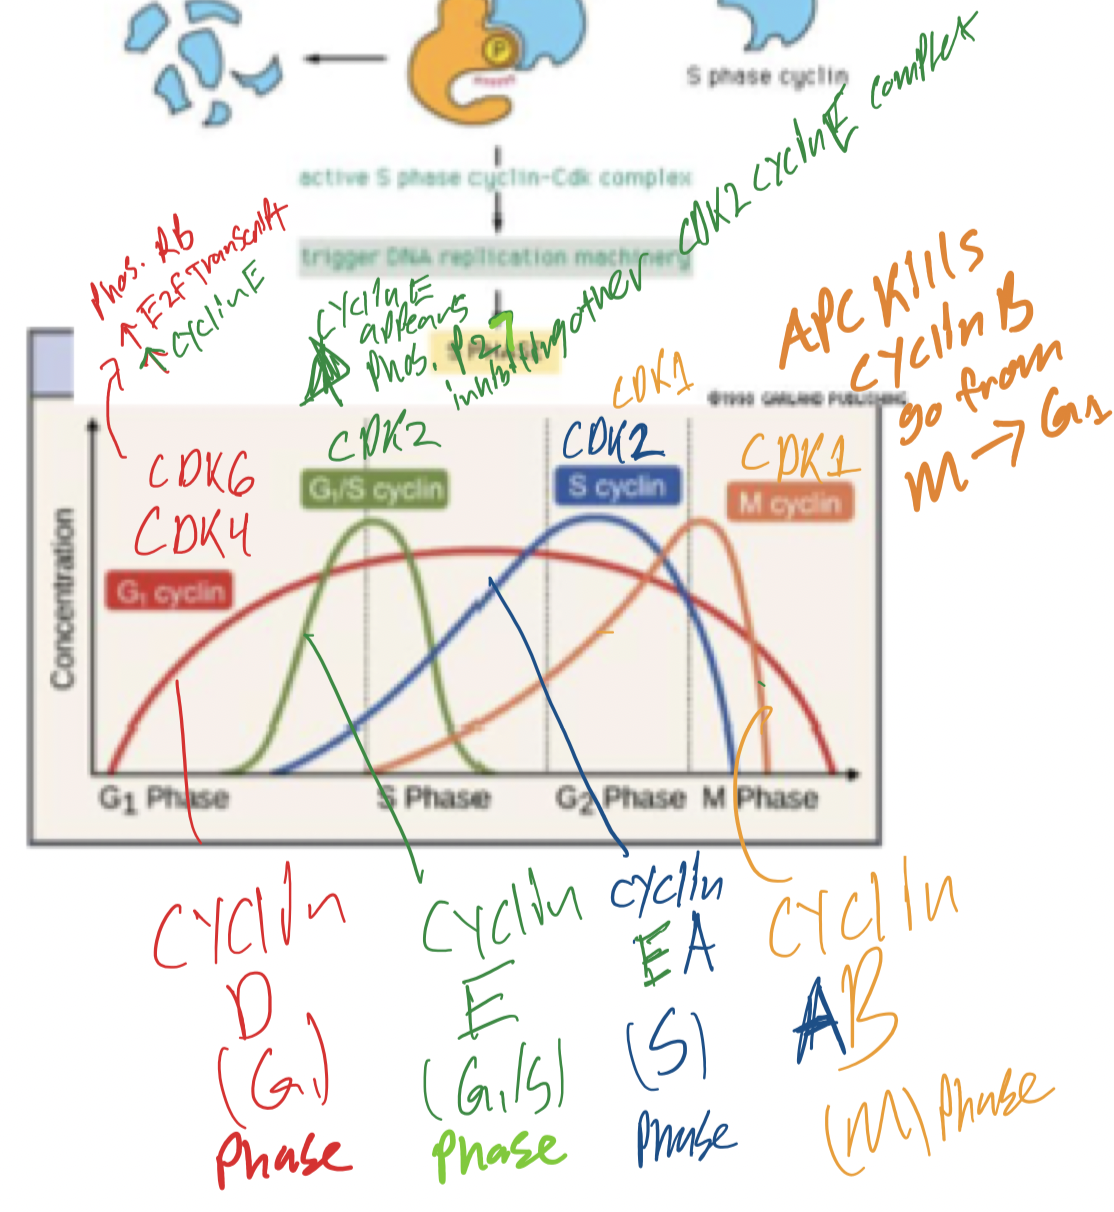 P
S phase cyclin
active S phase cyclin-Cdk complex
trigger DNA replication machinery
CDK2 cyclin E complex
Phos. RB
↑ E2F Transcript
↑ cyclin E
cyclin E
appears
Phos. P27
inhibiting other
S PHASE
©1998 GARLAND PUBLISHING
APC Kills
cyclin B
go from
M → G1
CDK1
CDK6
CDK4
CDK2
CDK2
CDK1
G1/S cyclin
S cyclin
M cyclin
G1 cyclin
Concentration
G1 Phase
S Phase
G2 Phase
M Phase
cyclin
D
(G1)
Phase
cyclin
E
(G1/S)
Phase
cyclin
E A
(S)
Phase
cyclin
A B
(M) Phase